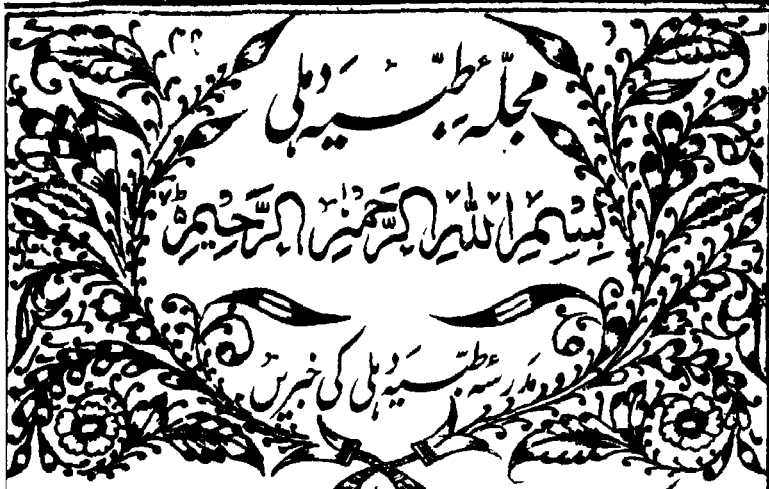 مجلّۂ طِبّیَہ دہلی
بِسْمِ اللهِ الرَّحْمٰنِ الرَّحِیْمِ
مدرسۂ طِبّیَہ دہلی کی خبریں